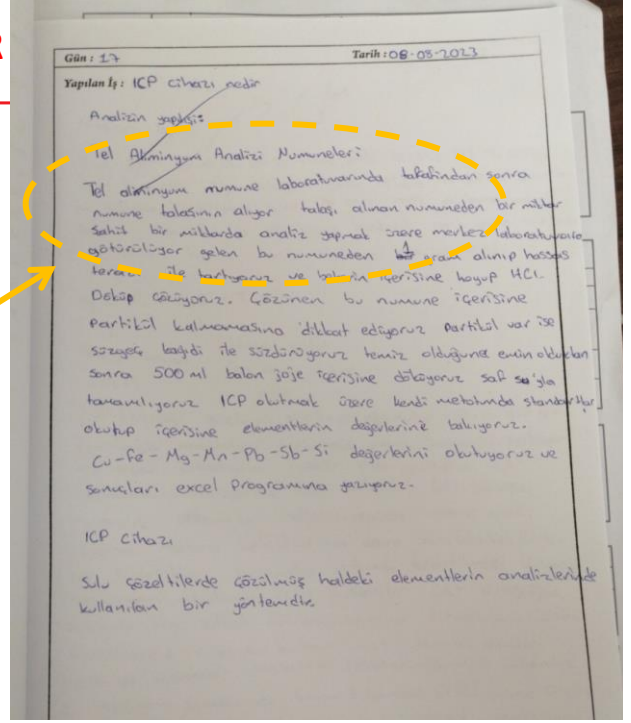 R
Gün : 17
Tarih : 08-03-2023
Yapılan İş : ICP Cihazı nedir
Analizin yapılışı:
Tel Alminyum Analizi Numuneleri:
Tel aliminyum numune laboratuvarında tarafından sonra
numune talasının alıyor talaşı alınan numuneden bir miktar
Sahit bir miktarda analiz yapmak üzere merkez laboratuvara
götürülüyor gelen bu numuneden 1 gram alınıp hassas
terazi ile tartıyoruz ve beherin içerisine koyup HCL
Döküp çözüyoruz. Çözünen bu numune içerisine
Partikül kalmamasına dikkat ediyoruz Partikül var ise
süzgeç kağıdı ile süzdürüyoruz temiz olduğuna emin oldukdan
sonra 500 ml balon joje içerisine döküyoruz saf su'yla
tamamlıyoruz ICP okutmak üzere kendi metotunda standartlar
okutup içerisine elementlerin değerlerine bakıyoruz.
Cu-Fe-Mg-Mn-Pb-Sb-Si değerlerini okutuyoruz ve
sonuçları excel Programına yazıyoruz.
ICP Cihazı
Sulu çözeltilerde çözülmüş haldeki elementlerin analizlerinde
kullanılan bir yöntemdir.